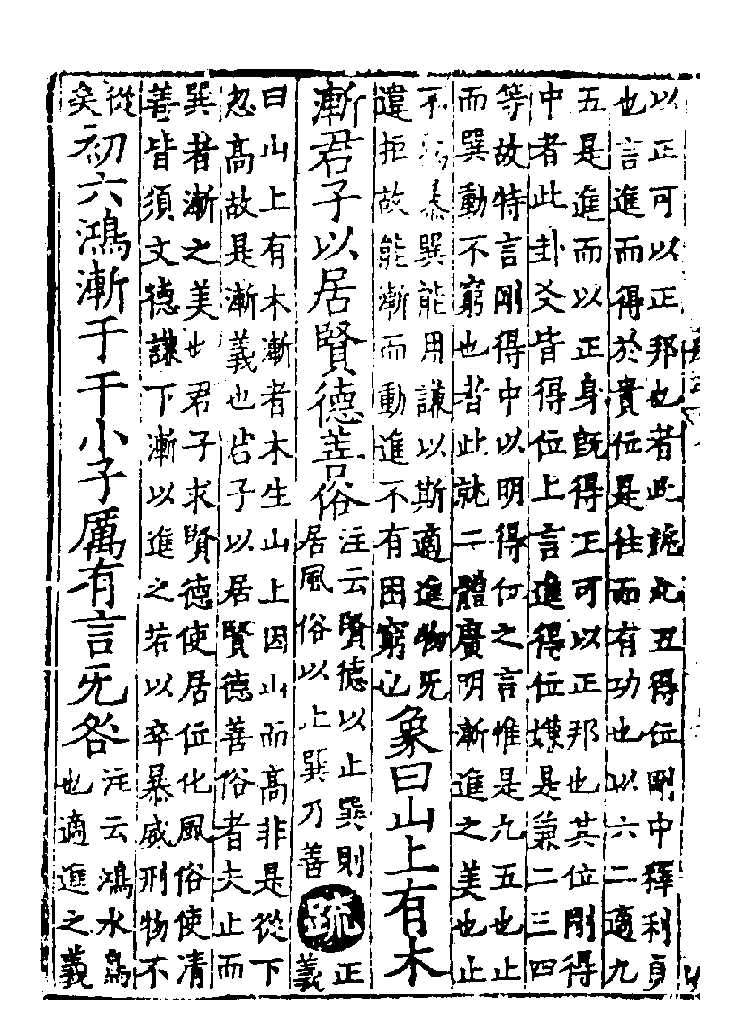 以正可以正邦也者此就九五得位剛中釋利貞
也言進而得於貴位是往而有功也以六二適九
五是進而以正身既得正可以正邦也其位剛得
中者此卦爻皆得位上言進得位嫌是兼二三四
等故特言剛得中以明得位之言惟是九五也止
而巽動不窮也者此就二體廣明漸進之美也止
不為暴巽能用謙以斯適進物无
違拒故能漸而動進不有困窮也
象曰山上有木
漸君子以居賢德善俗
注云賢德以止巽則
居風俗以止巽乃善
疏
正
義
曰山上有木漸者木生山上因山而高非是從下
忽高故是漸義也君子以居賢德善俗者夫止而
巽者漸之美也君子求賢德使居位化風俗使清
善皆須文德謙下漸以進之若以卒暴威刑物不
從
矣
初六鴻漸于干小子厲有言无咎
注云鴻水鳥
也適進之義